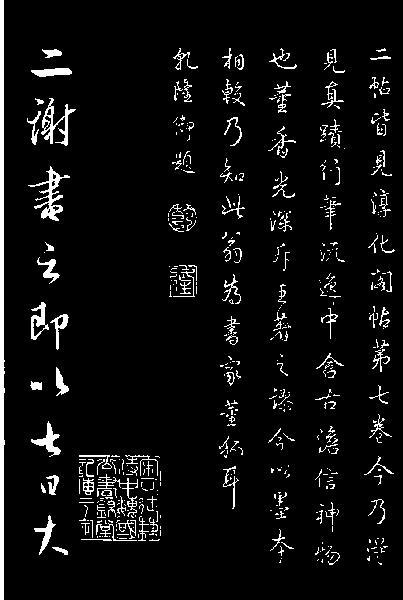 二帖皆見淳化閣帖第七卷今乃得
見真蹟行筆流逸中含古澹信神物
也董香光深斥王著之謬今以墨本
相較乃知此翁為書家董狐耳
乾隆御題
乾
隆
二謝書云即以七日大